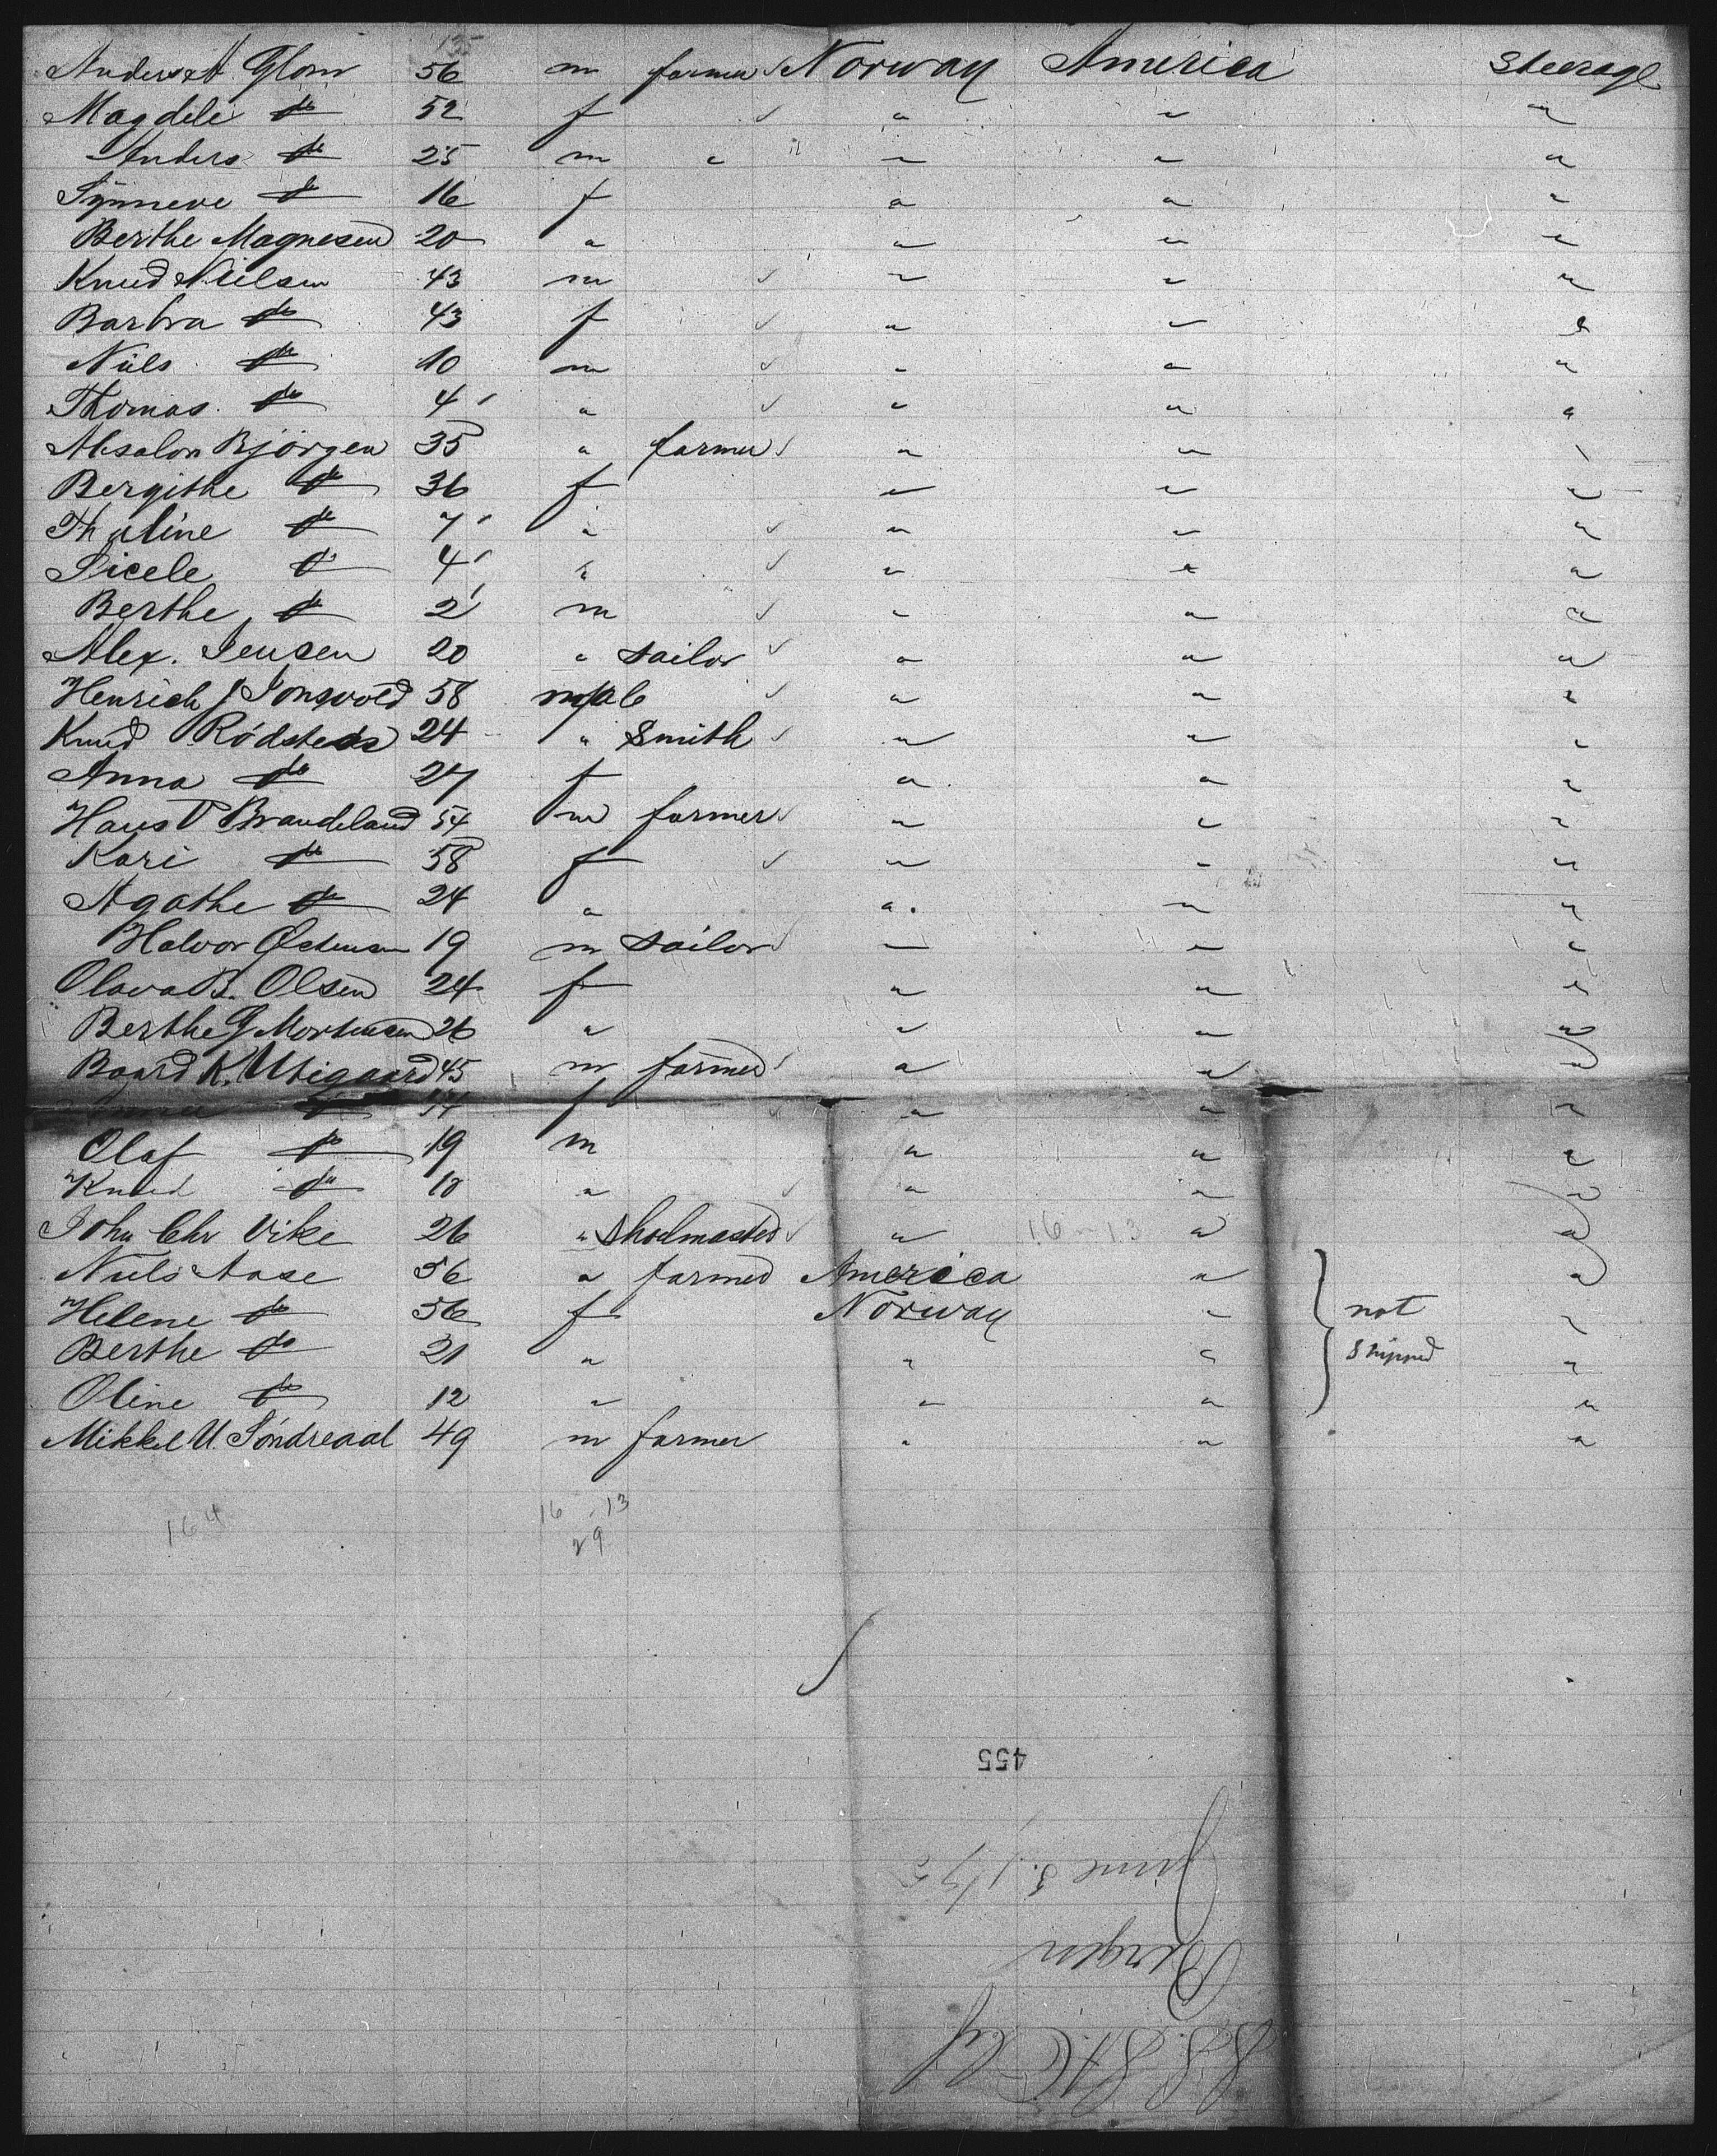 135
Anders A. Glom 56 m farmer Norway America Steerage
Magdeli do 52 f " " "
Anders do 25 m " " " "
Synneve do 16 f " " "
Berthe Magnesen 20 " " " "
Knud Nielsen 43 m " " "
Barbra do 43 f " " "
Niels do 10 m " " "
Thomas do 4 " " " "
Absalon Bjørgen 35 " farmer " " "
Bergithe do 36 f " " "
Thaline do 7 " " " "
Sicele do 4 " " " "
Berthe do 2 m " " "
Alex. Jensen 20 " sailor " " "
Henrich J 58 male " " "
Knud 24 " Smith " " "
Anna do 27 f " " "
Hans Brandeland 54 m farmer " " "
Kari do 58 f " " "
Agathe do 24 " " " "
Halvor 19 m sailor " " "
Olava B. Olsen 24 f " " "
Berthe G Mortensen 26 " " " "
Baard K. Utigaard 45 m farmer " " "
do f " " "
Olaf do 19 m " " "
Knud do " " " "
John Chr Vike 26 " shoolmaster " 16-13 " "
Niels Aase 56 " farmer America " "
Helene do 56 f Norway " not "
Berthe do 21 " " " shipped "
Oline do 12 " " " "
Mikkel U. Søndreaal 49 m farmer " " "
164 16-13
29
455
June 3. 1/75
Bergen
S.S. St